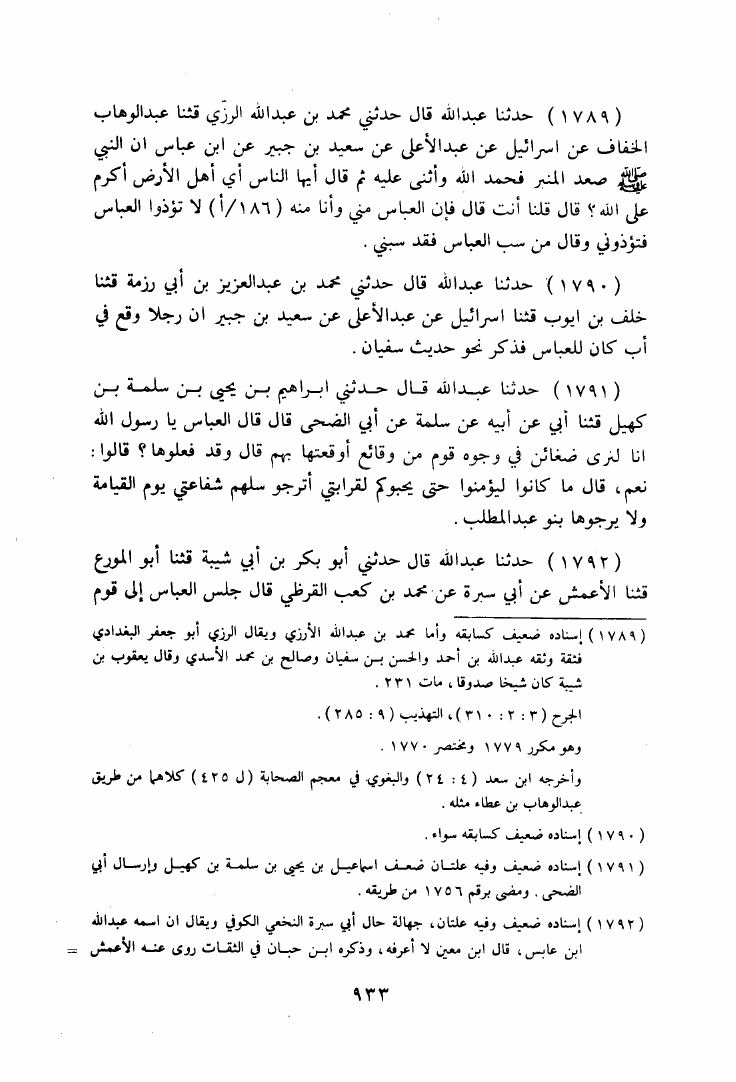 (١٧٨٩) حدثنا عبدالله قال حدثني محمد بن عبدالله الرزّي قثنا عبدالوهاب
الخفاف عن اسرائيل عن عبدالأعلى عن سعيد بن جبير عن ابن عباس ان النبي
ﷺ صعد المنبر فحمد الله وأثنى عليه ثم قال أيها الناس أي أهل الأرض أكرم
على الله؟ قال قلنا أنت قال فإن العباس مني وأنا منه (١٨٦/أ) لا تؤذوا العباس
فتؤذوني وقال من سب العباس فقد سبني .
(١٧٩٠) حدثنا عبدالله قال حدثني محمد بن عبدالعزيز بن أبي رزمة قثنا
خلف بن ايوب قثنا اسرائيل عن عبدالأعلى عن سعيد بن جبير ان رجلا وقع في
أب كان للعباس فذكر نحو حديث سفيان .
(١٧٩١) حدثنا عبدالله قال حدثني ابراهيم بن يحيى بن سلمة بن
كهيل قثنا أبي عن أبيه عن سلمة عن أبي الضحى قال قال العباس يا رسول الله
انا لنرى ضغائن في وجوه قوم من وقائع أوقعتها بهم قال وقد فعلوها؟ قالوا:
نعم، قال ما كانوا ليؤمنوا حتى يحبوكم لقرابتي أترجو سلهم شفاعتي يوم القيامة
ولا يرجوها بنو عبدالمطلب .
(١٧٩٢) حدثنا عبدالله قال حدثني أبو بكر بن أبي شيبة قثنا أبو المورع
قثنا الأعمش عن أبي سبرة عن محمد بن كعب القرظي قال جلس العباس إلى قوم
(١٧٨٩) إسناده ضعيف كسابقه وأما محمد بن عبدالله الأرزي ويقال الرزي أبو جعفر البغدادي
فثقة وثقه عبدالله بن أحمد والحسن بن سفيان وصالح بن محمد الأسدي وقال يعقوب بن
شيبة كان شيخا صدوقا، مات ٢٣١ .
الجرح (٣ : ٢ : ٣١٠)، التهذيب (٩ : ٢٨٥).
وهو مكرر ١٧٧٩ ومختصر ١٧٧٠ .
وأخرجه ابن سعد (٤ : ٢٤) والبغوي في معجم الصحابة (ل ٤٢٥) كلاهما من طريق
عبدالوهاب بن عطاء مثله .
(١٧٩٠) إسناده ضعيف كسابقه سواء .
(١٧٩١) إسناده ضعيف وفيه علتان ضعف اسماعيل بن يحيى بن سلمة بن كهيل وإرسال أبي
الضحى . ومضى برقم ١٧٥٦ من طريقه .
(١٧٩٢) إسناده ضعيف وفيه علتان، جهالة حال أبي سبرة النخعي الكوفي ويقال ان اسمه عبدالله
ابن عابس، قال ابن معين لا أعرفه، وذكره ابن حبان في الثقات روى عنه الأعمش =
٩٣٣